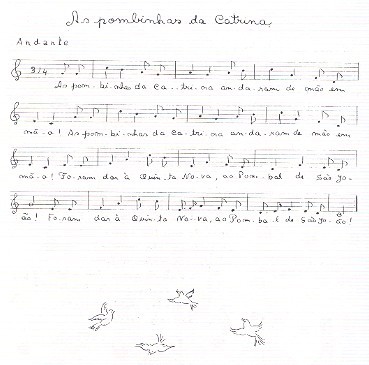 As pombinhas da Catrina
Andante
3/4
As pom-bi-nhas da Ca-tri-na an-da-ram de mão em
mã-o! As pom-bi-nhas da Ca-tri-na an-da-ram de mão em
mã-o! Fo-ram dar à Quin-ta No-va, ao Pom-bal de São Jo-
ão! Fo-ram dar à Quin-ta No-va, ao Pom-bal de São Jo-ão!